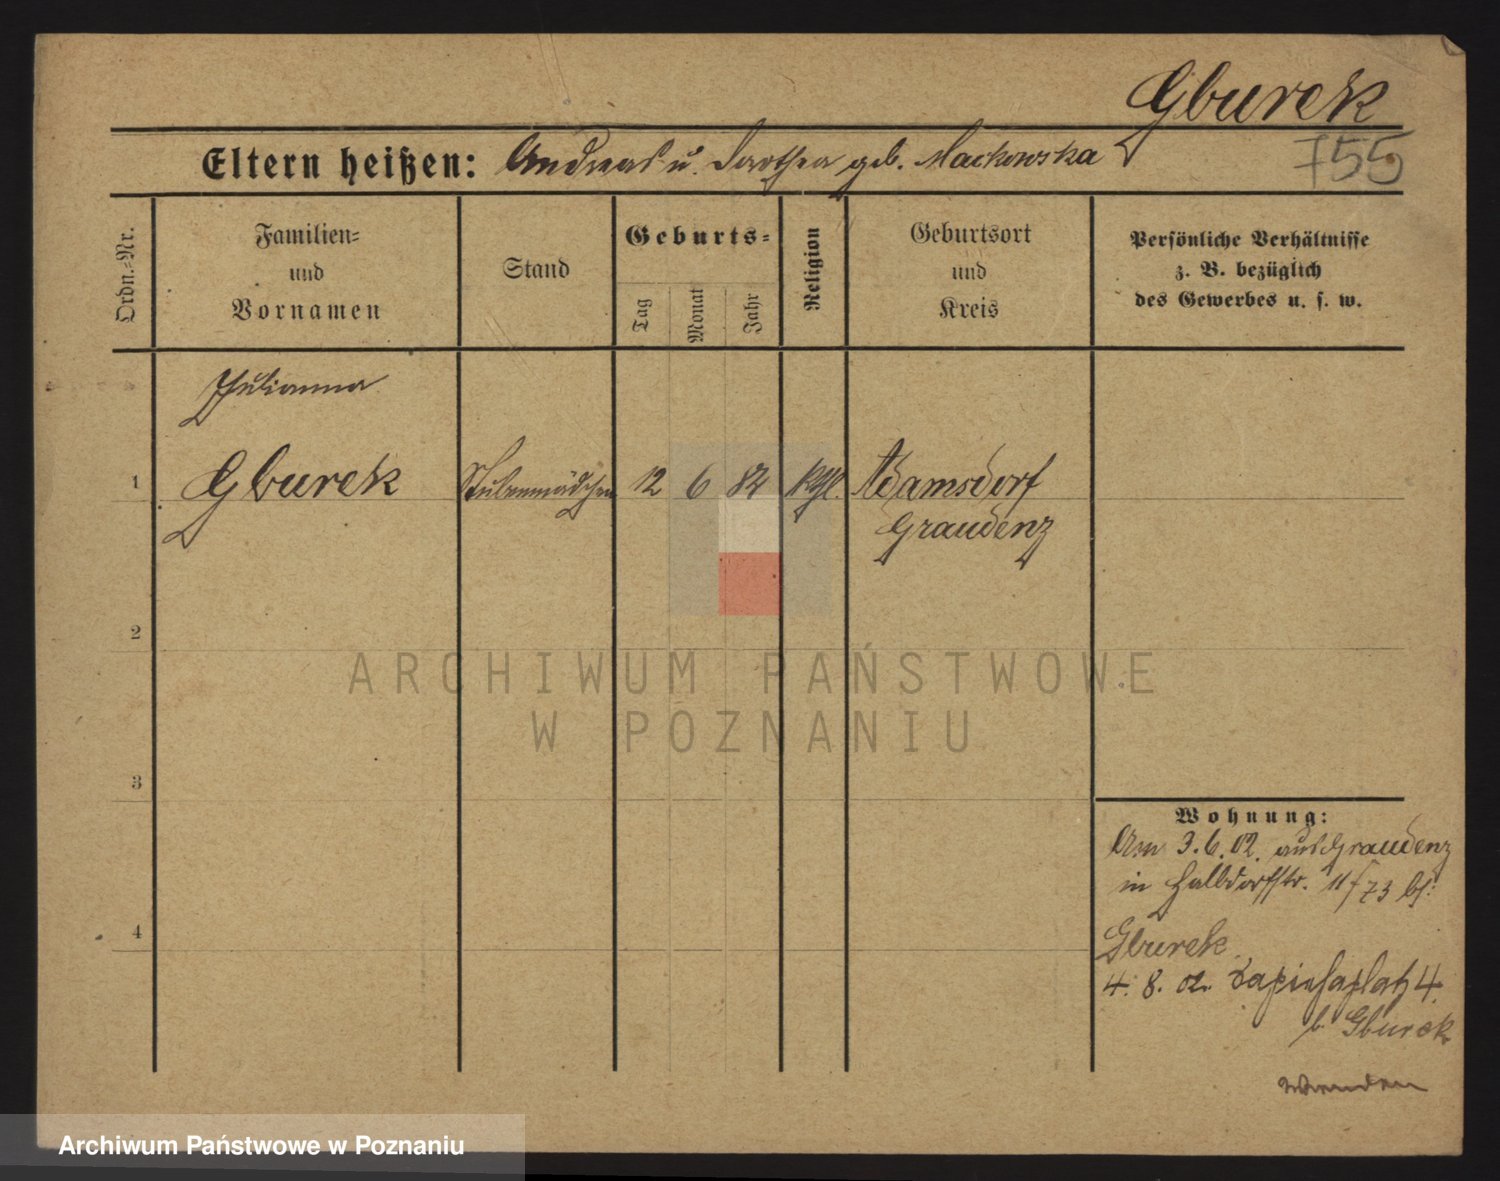 Gburek
755
Eltern heißen: Andreas u. Dorothea geb. Mackowska
Ordn.=Nr.
Familien=
und
Vornamen
Stand
Geburts=
Tag
Monat
Jahr
Religion
Geburtsort
und
Kreis
Persönliche Verhältnisse
z. B. bezüglich
des Gewerbes u. s. w.
Julianna
1 Gburek Stubenmädchen 12 6 82 kthl. Adamsdorf
Graudenz
2
3
4
Wohnung:
Am 3.6.02. aus Graudenz
in Halbdorfstr. 11/73 bs:
Gburek
4. 8. 02. Sapiehaplatz 4.
b. Gburek
Wenden
ARCHIWUM PAŃSTWOWE
W POZNANIU
Archiwum Państwowe w Poznaniu